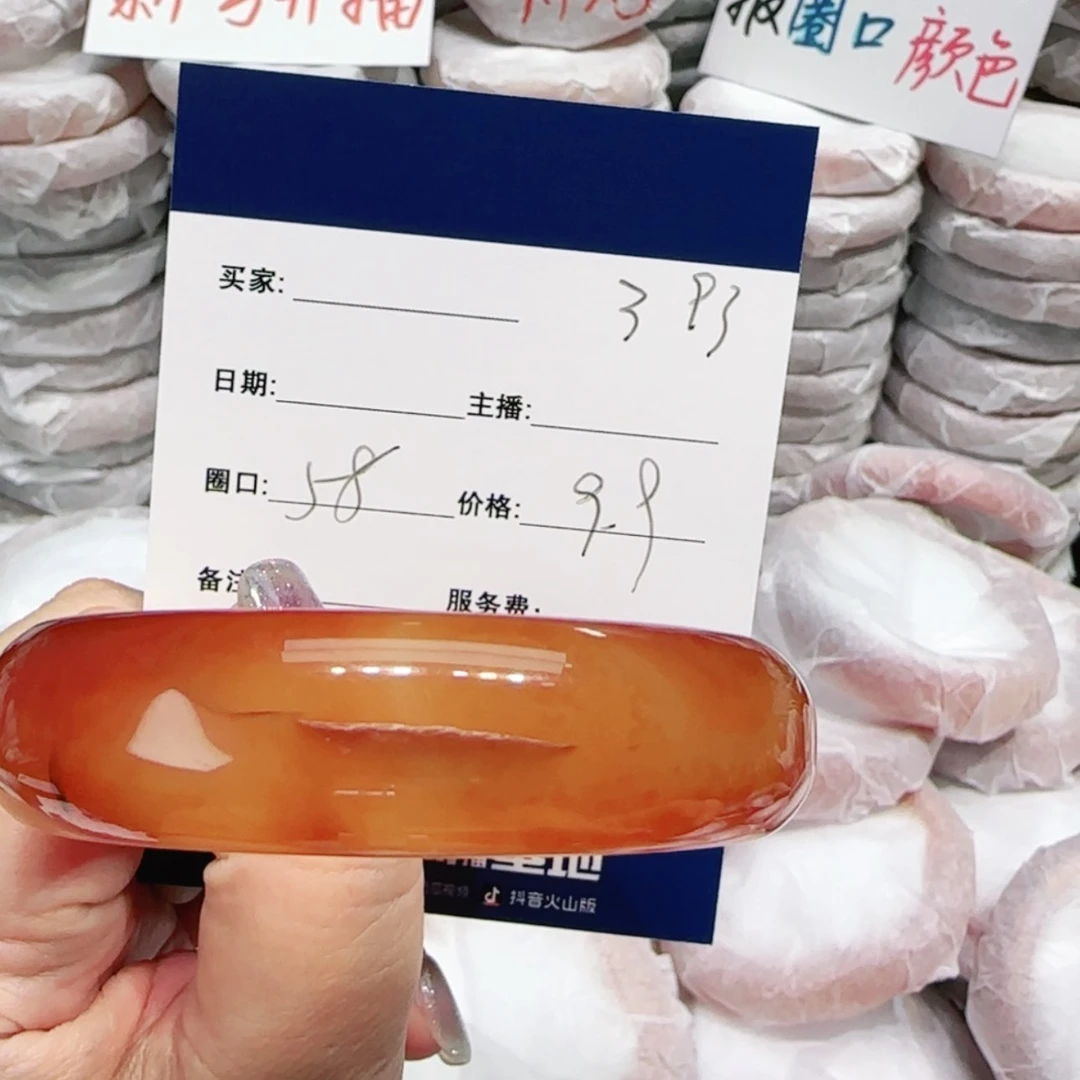 报圈口
颜色
买家:
3 93
日期: 主播:
圈口: 58 价格: 99
备注
服务费:
播基地
抖音火山版